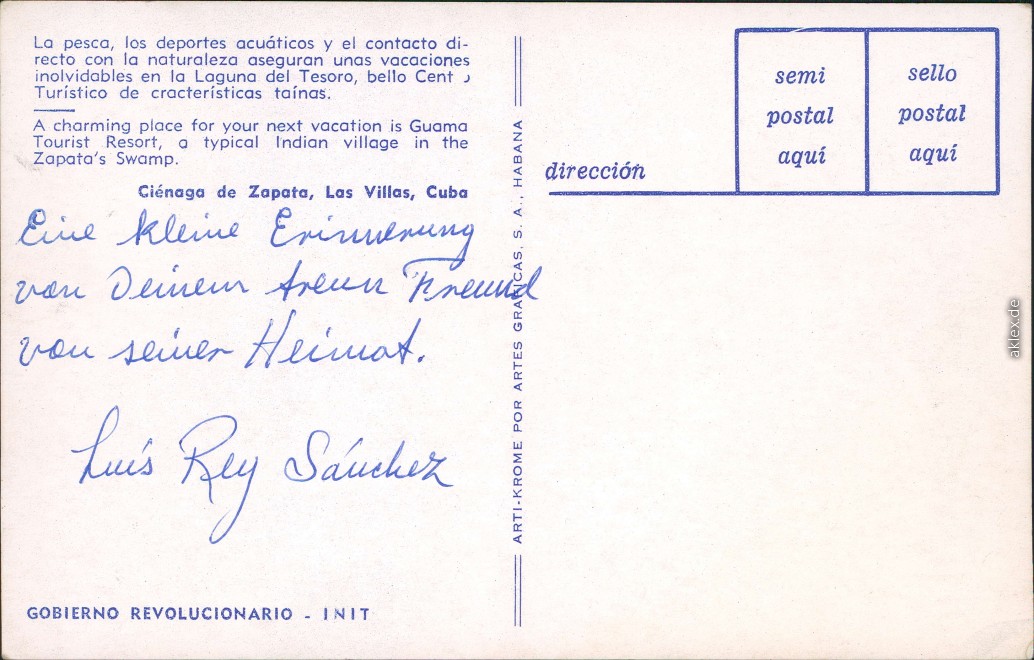 La pesca, los deportes acuáticos y el contacto di-
recto con la naturaleza aseguran unas vacaciones
inolvidables en la Laguna del Tesoro, bello Cent
Turístico de cracterísticas taínas.
A charming place for your next vacation is Guama
Tourist Resort, a typical Indian village in the
Zapata's Swamp.
Ciénaga de Zapata, Las Villas, Cuba
Eine kleine Erinnerung
von Deinem treuen Freund
von seiner Heimat.
Luis Rey Sánchez
GOBIERNO REVOLUCIONARIO - INIT
ARTI-KROME POR ARTES GRAFICAS, S. A., HABANA
dirección
semi
postal
aquí
sello
postal
aquí
aklex.de